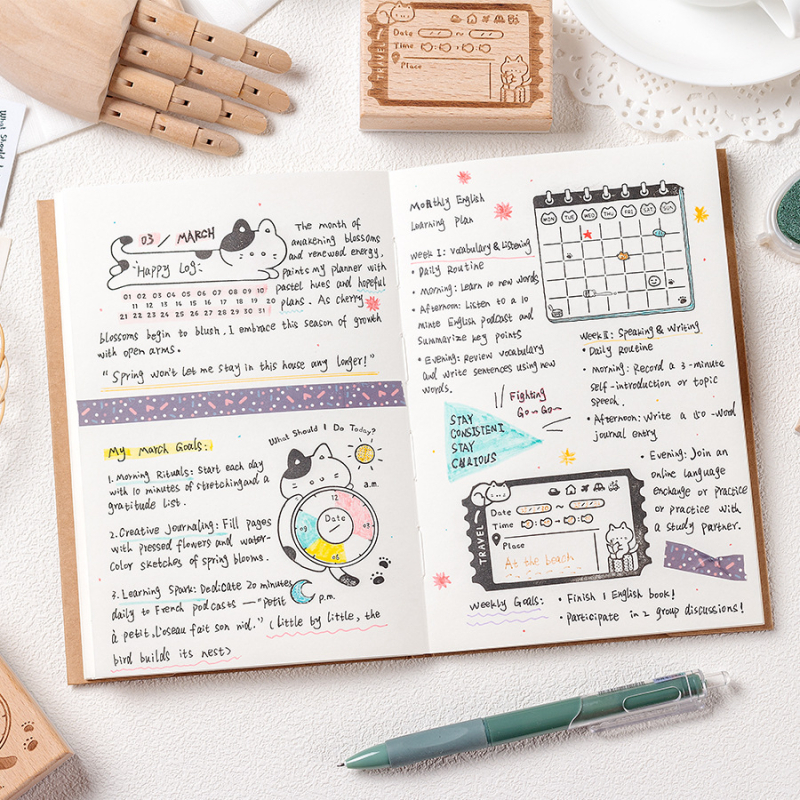 TRAVEL
Date ~
Time
Place
What Should I
03 / MARCH
Happy Log
01 02 03 04 05 06 07 08 09 10
11 12 13 14 15 16 17 18 19 20
21 22 23 24 25 26 27 28 29 30 31
The month of
awakening blossoms
and renewed energy,
paints my planner with
pastel hues and hopeful
plans. As cherry
blossoms begin to blush, I embrace this season of growth
with open arms.
"Spring won't let me stay in this house any longer!"
My March Goals:
1. Morning Rituals: Start each day
with 10 minutes of stretching and a
gratitude list.
2. Creative Journaling: Fill pages
with pressed flowers and water-
color sketches of spring blooms.
3. Learning Spark: Dedicate 20 minutes
daily to French podcasts — "Petit
à petit, l'oseau fait son nid." (Little by little, the
bird builds its nest)
What Should I Do Today?
a.m.
12
09 Date 03
06
p.m.
Monthly English
Learning Plan
Week I: Vocabulary & Listening
• Daily Routine
• Morning: Learn 10 new words
• Afternoon: Listen to a 10
minte English podcast and
Summarize key points
• Evening: Review vocabulary
and write sentences using new
words.
MON TUE WED THU FRI SAT SUN
Week II: Speaking & Writing
• Daily Routine
• Morning: Record a 3-minute
self-introduction or topic
speech.
• Afternoon: Write a 150-word
journal entry
• Evening: Join an
online language
enchange or practice
or practice with
a study partner.
Fighting
Go~Go~
STAY
CONSISTENT
STAY
CURIOUS
TRAVEL
Date ~
Time
Place
At the beach
Weekly Goals:
• Finish 1 English book!
• Participate in 2 group discussions!